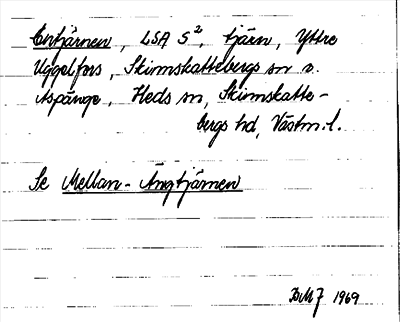 Entjärnen, LSA S², tjärn, Yttre
Uggelfors, Skinnskattebergs sn o.
Aspänge, Heds sn, Skinnskatte-
bergs hd, Västm. l.
Se Mellan-Ängtjärnen
BMJ 1969